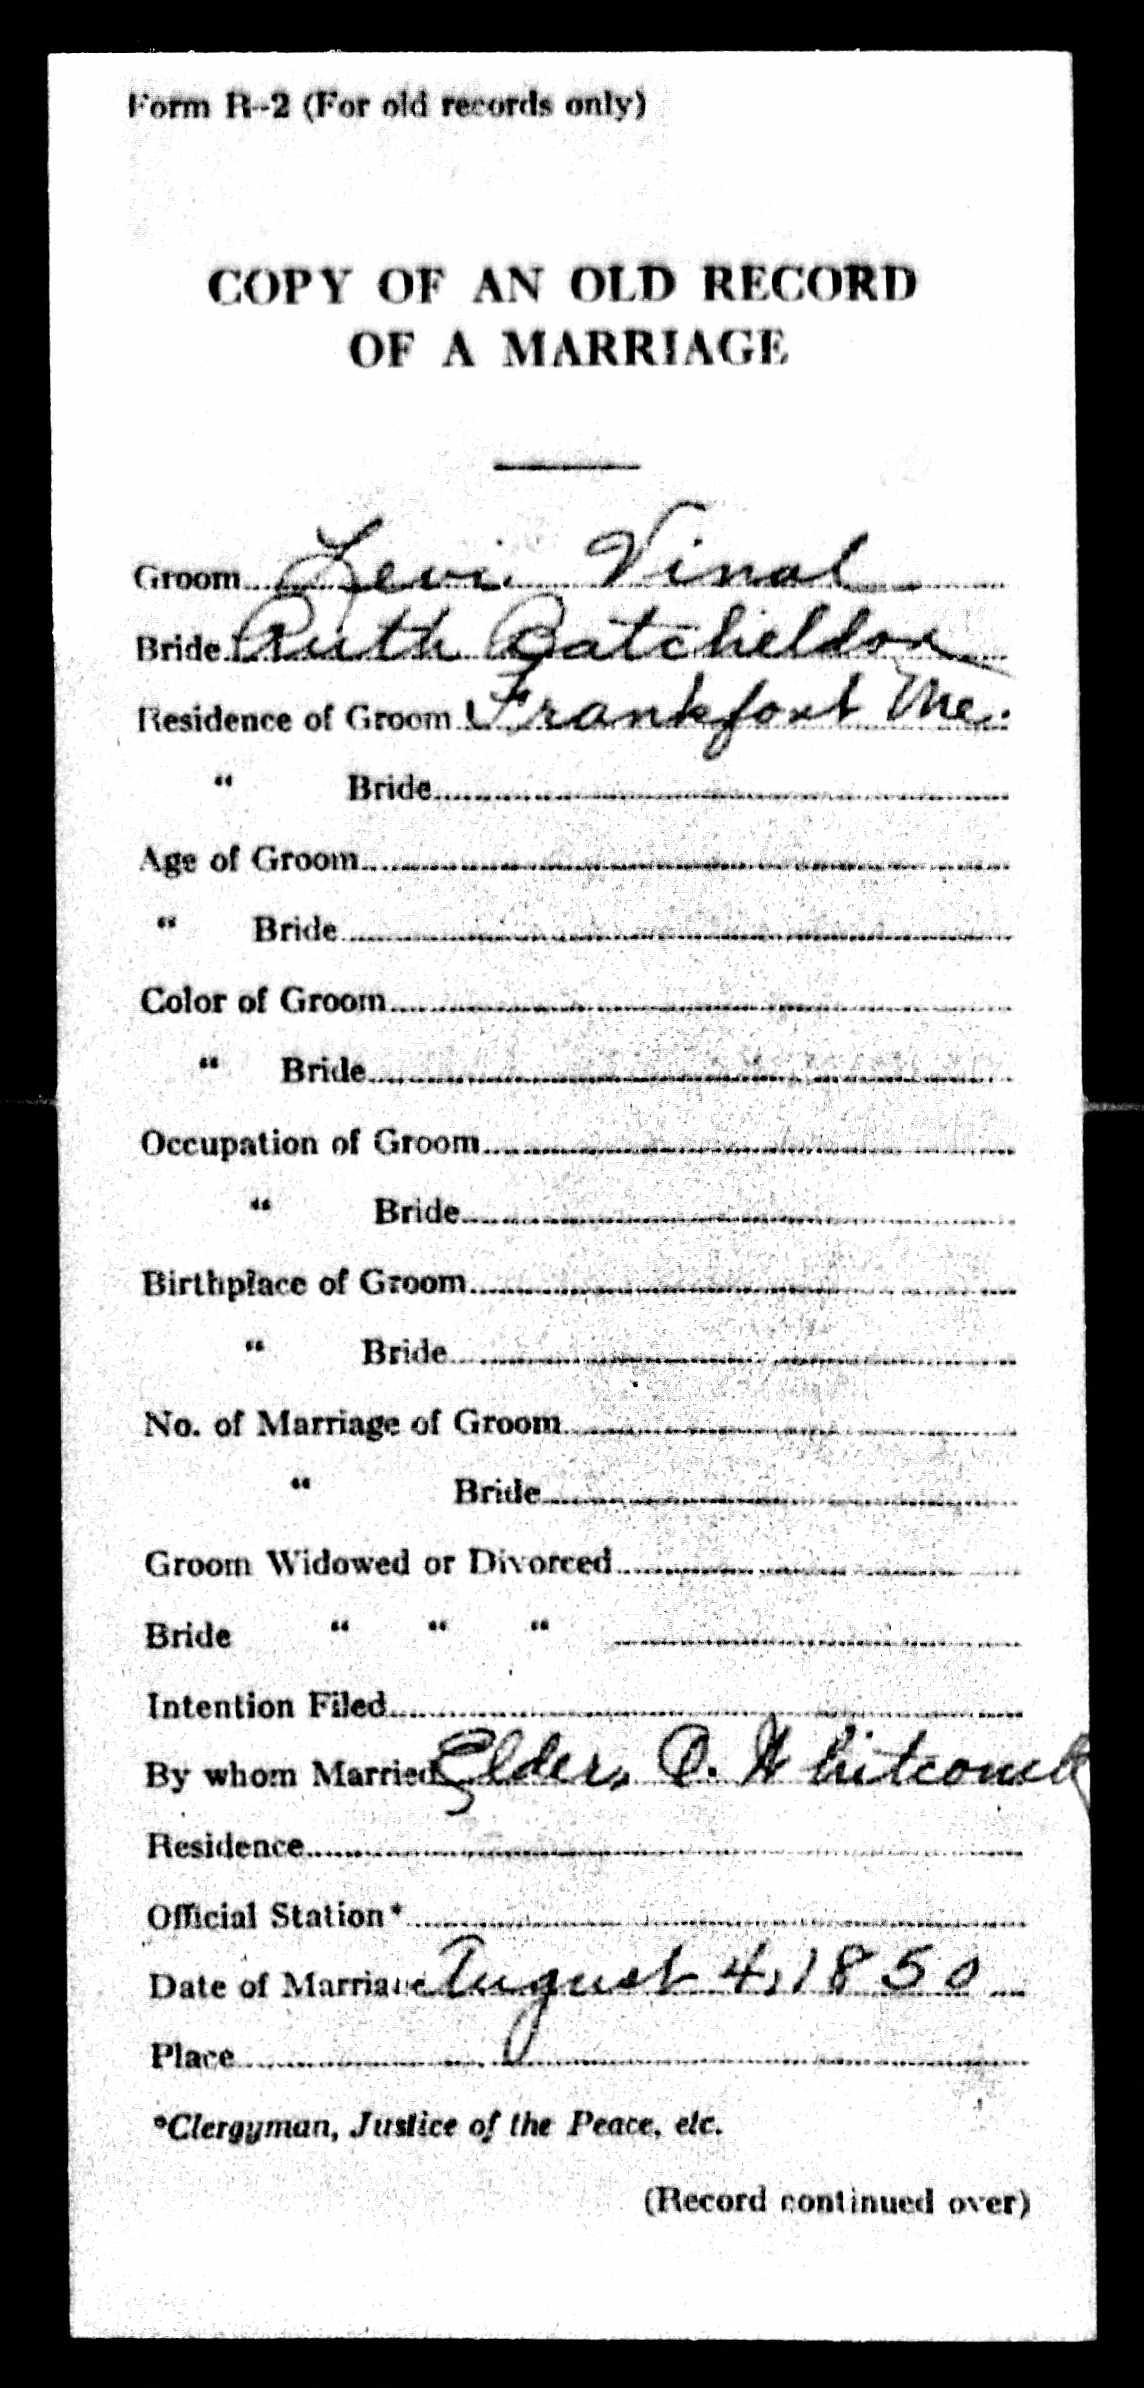 Form R-2 (For old records only)
COPY OF AN OLD RECORD
OF A MARRIAGE
Groom Levi Vinal
Bride Ruth Batcheldor
Residence of Groom Frankfort Me.
" Bride
Age of Groom
" Bride
Color of Groom
" Bride
Occupation of Groom
" Bride
Birthplace of Groom
" Bride
No. of Marriage of Groom
" Bride
Groom Widowed or Divorced
Bride " " "
Intention Filed
By whom Married Elder, O. Whitcomb
Residence
Official Station*
Date of Marriage August 4, 1850
Place
*Clergyman, Justice of the Peace, etc.
(Record continued over)